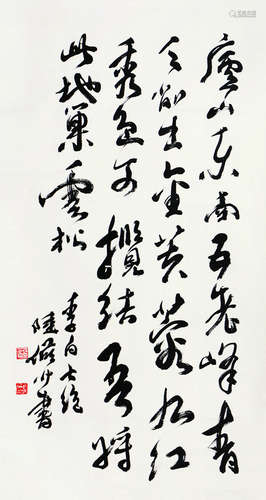 廬山东南五老峰青
天削出金芙蓉九江
秀色可攬結吾將
此地巢雲松
李白七絕
陸儼少書